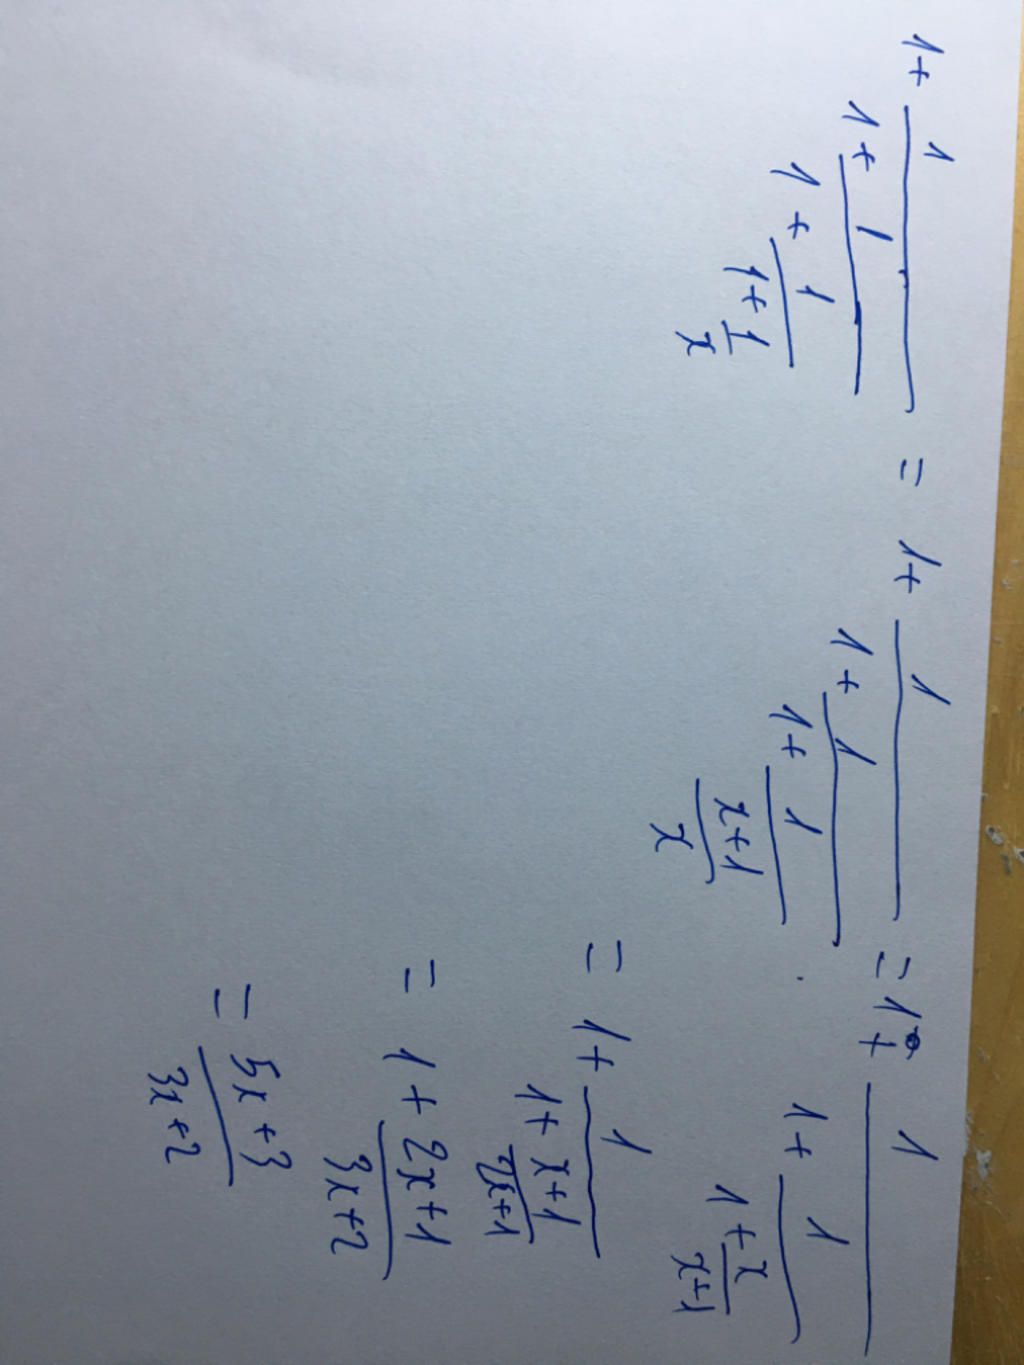 1 + \frac{1}{1 + \frac{1}{1 + \frac{1}{1 + \frac{1}{x}}}} = 1 + \frac{1}{1 + \frac{1}{1 + \frac{1}{\frac{x+1}{x}}}} = 1 + \frac{1}{1 + \frac{1}{1 + \frac{x}{x+1}}}
= 1 + \frac{1}{1 + \frac{x+1}{2x+1}}
= 1 + \frac{2x+1}{3x+2}
= \frac{5x+3}{3x+2}